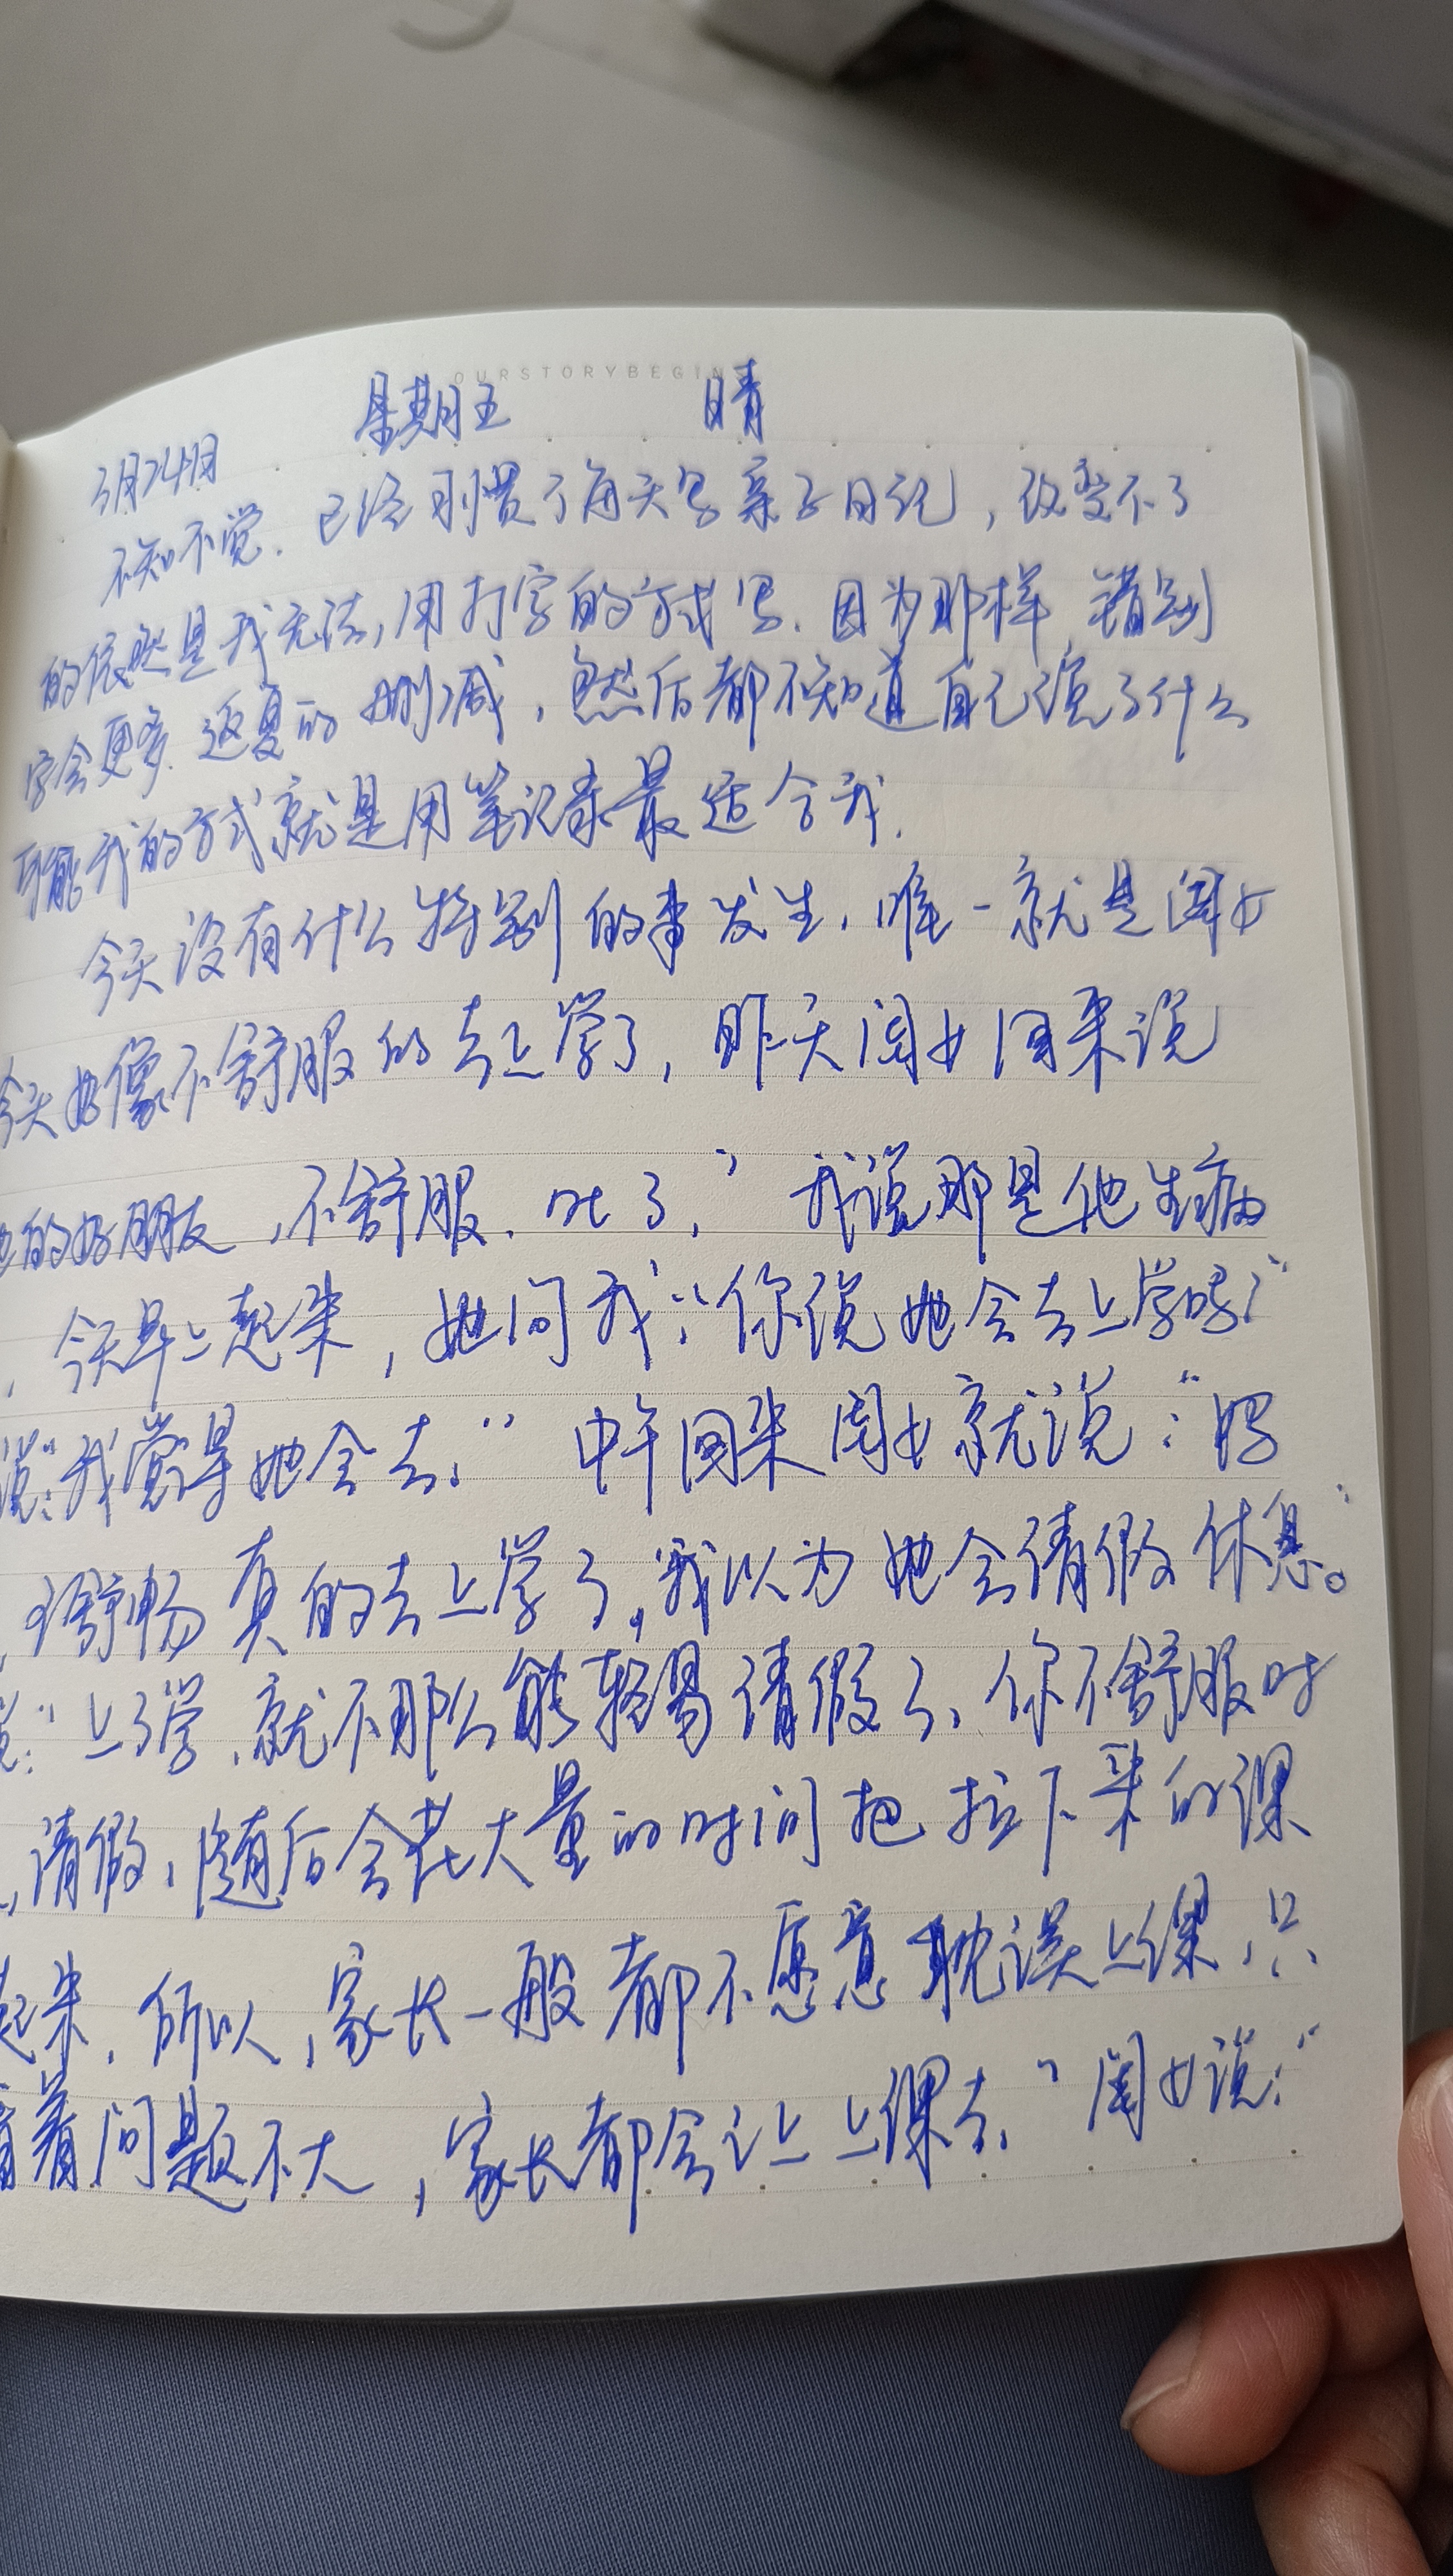 OURSTORYBEGIN
3月24日 星期五 晴
不知不觉.已经习惯了每天写亲子日记,改变不了
的依然是我无法,用打字的方式写.因为那样,错别
字会更多.返复的删减,忽然后都不知道自己说了什么
可能我的方式就是用笔记录最适合我.
今天没有什么特别的事发生.唯一就是闺女
今天好像不舒服的去上学了,昨天闺女回来说
的好朋友,不舒服.吐了,” 我说那是他生病
,今天早上起来,她问我:“你说她会去上学吗?”
说:“我觉得她会去.” 中午回来闺女就说:“
舒畅真的去上学了,我以为她会请假休息。”
:“上了学,就不那么能轻易请假了、你不舒服时
,请假,随后会花大量的时间把拉下来的课
起来.所以,家长一般都不愿意耽误上课,只
着问题不大,家长都会让上课去.”闺女说:“